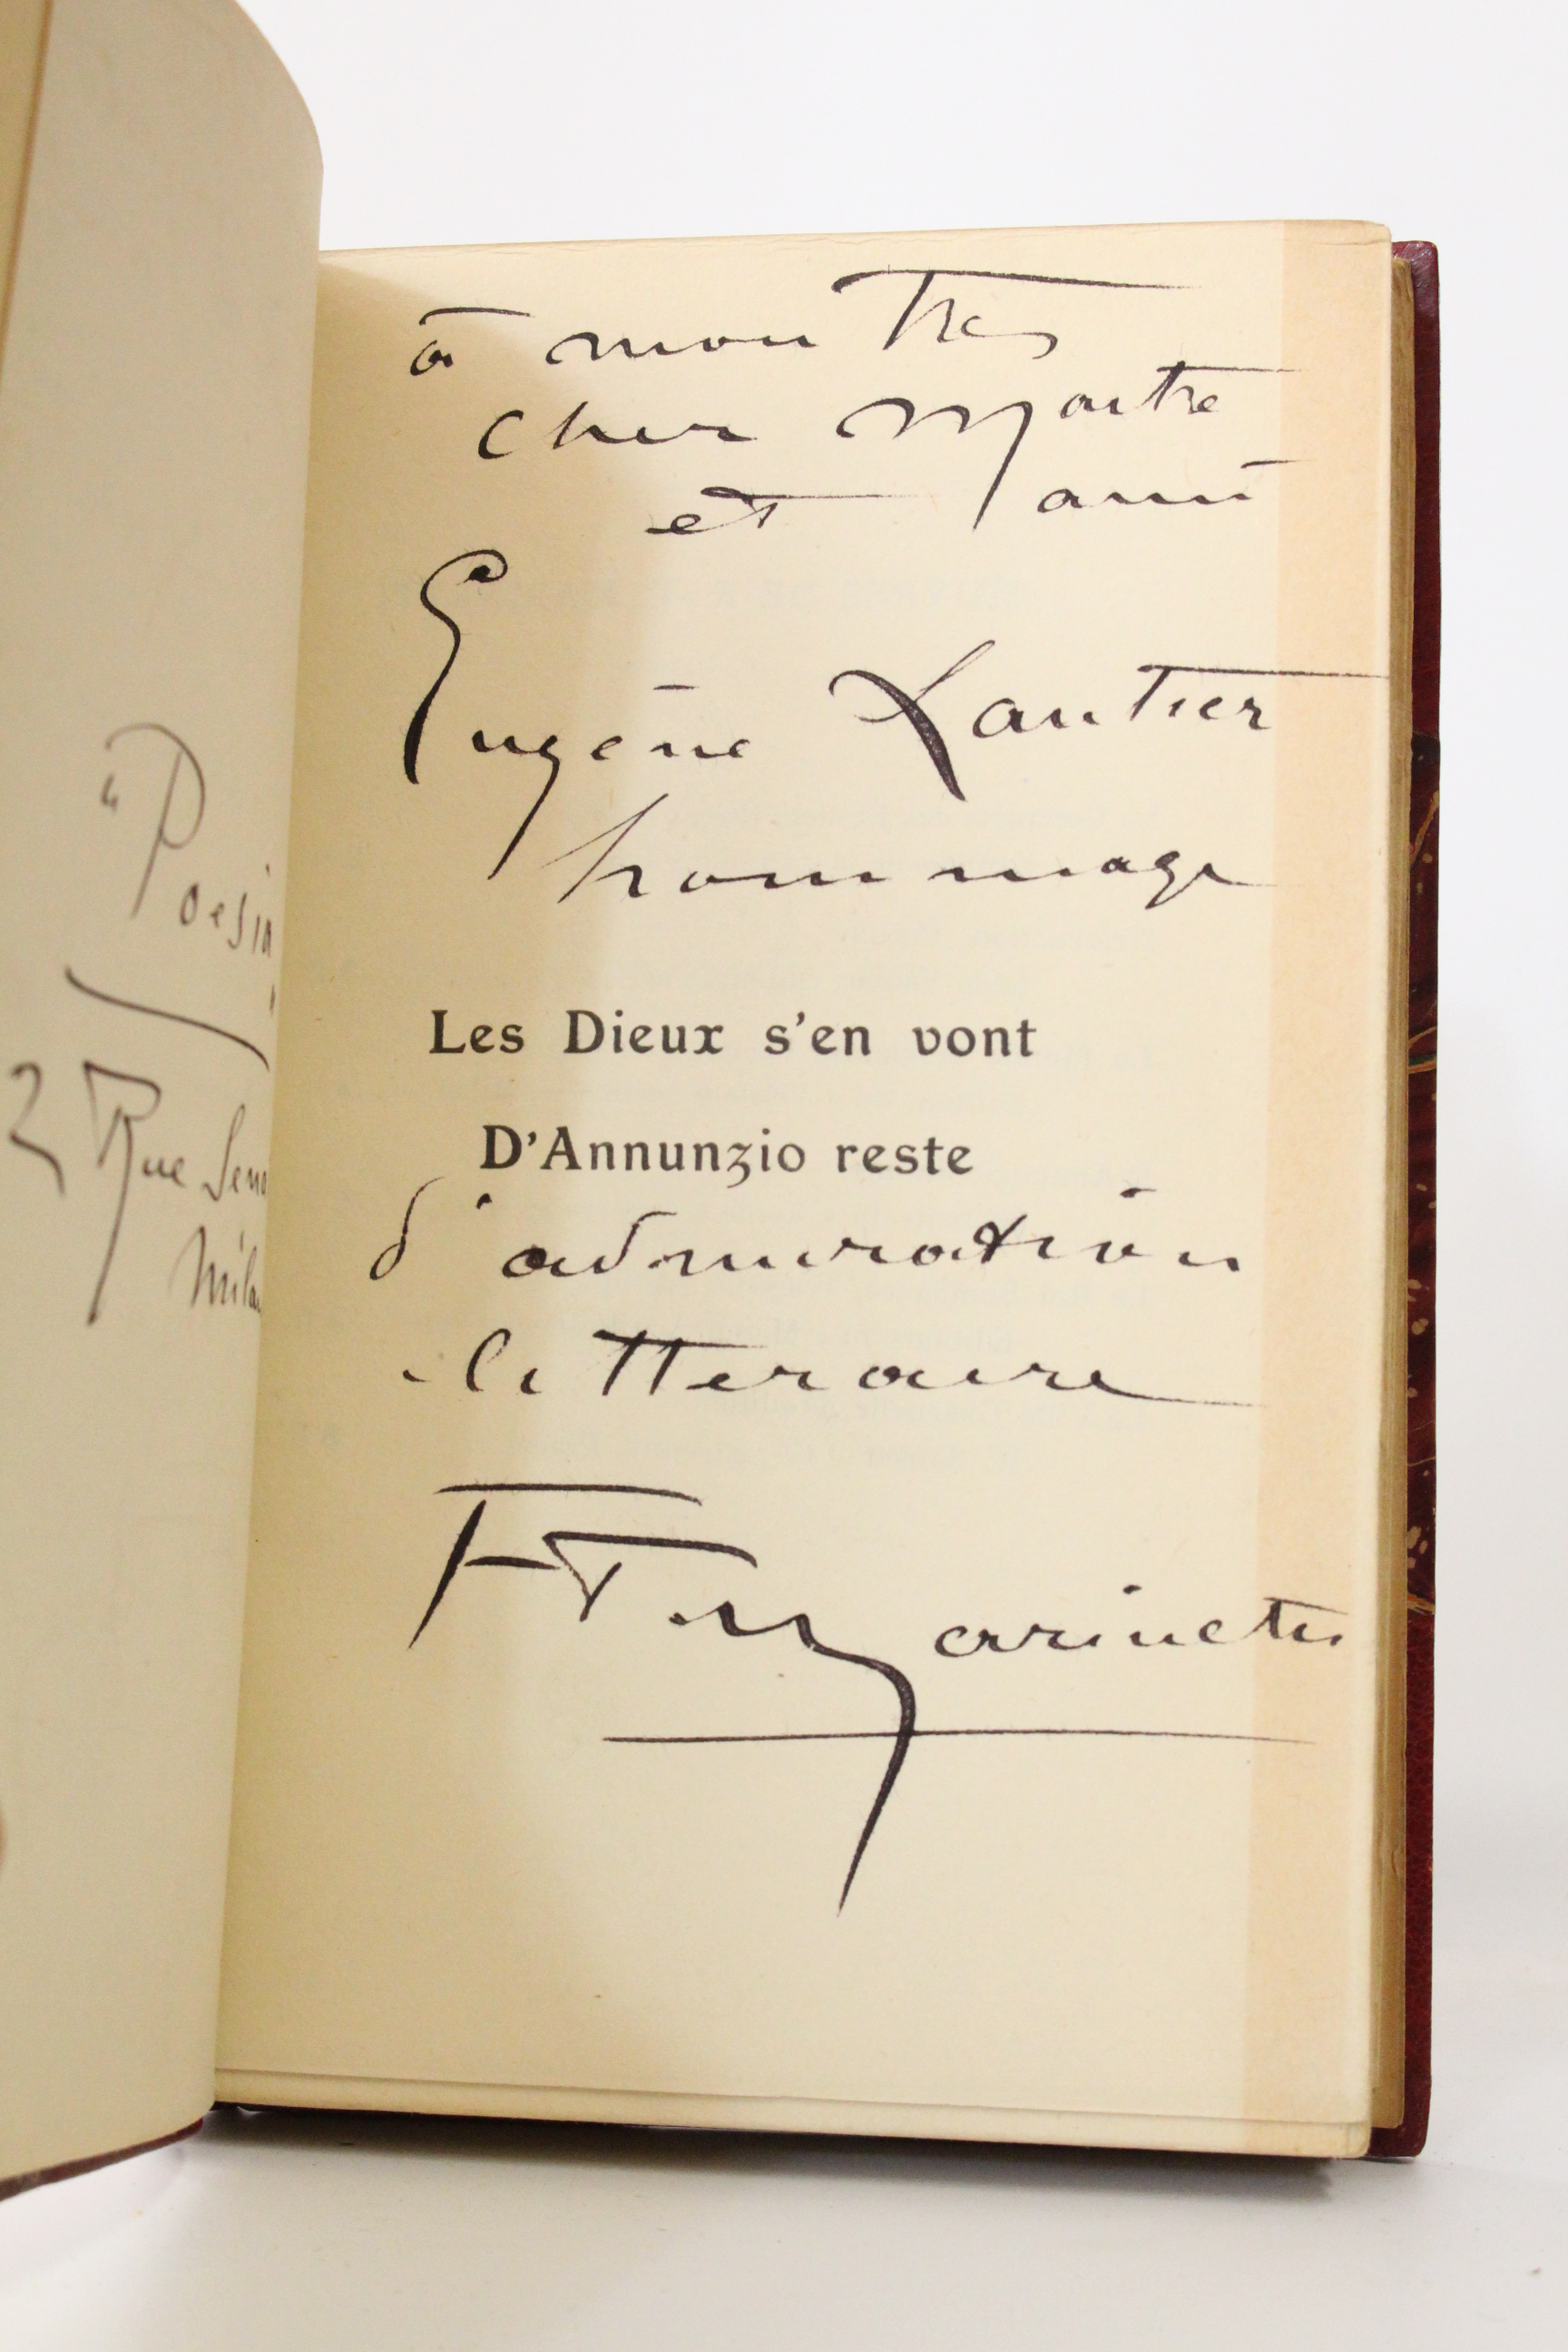 "Poesia"
2 Rue Sena
Milan
à mon Tres
cher Maitre
et ami
Eugène Lautier
hommage
Les Dieux s'en vont
D'Annunzio reste
d'admiration
litteraire
FTMarinetti